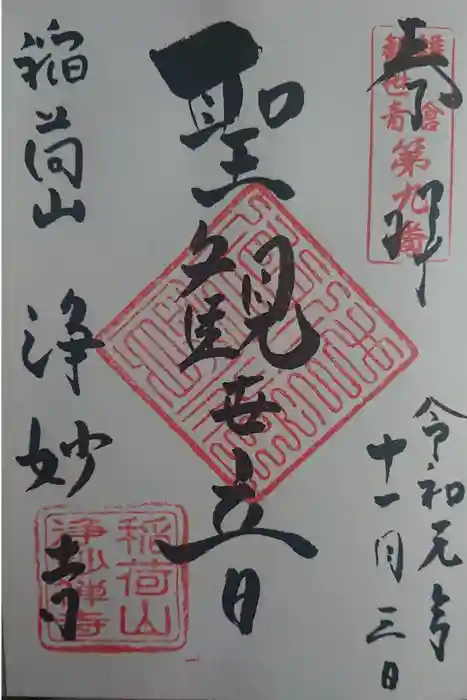 奉拝
鎌倉
観世音
第九番
令和元年
十一月三日
聖観世音
稲荷山
浄妙寺
稲荷山
浄妙禅寺